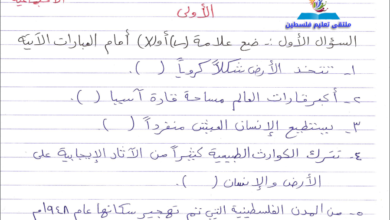 الاجتماعية
ملتقى تعليم فلسطين
الأولى
السؤال الأول :- ضع علامة (✓) أو (X) أمام العبارات الآتية
١- تتخذ الأرض شكلاً كروياً ( ).
٢- أكبر قارات العالم مساحة قارة آسيا ( ).
٣- يستطيع الإنسان العيش منفرداً ( ).
٤- تترك الكوارث الطبيعية كثيراً من الآثار الإيجابية على
الأرض والإنسان ( ).
٥- من المدن الفلسطينية التي تم تهجير سكانها عام ١٩٤٨م